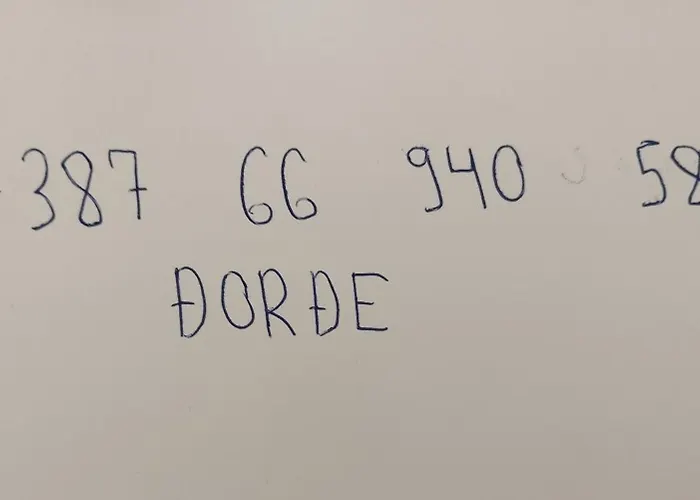 387 66 940 58
ĐORĐE